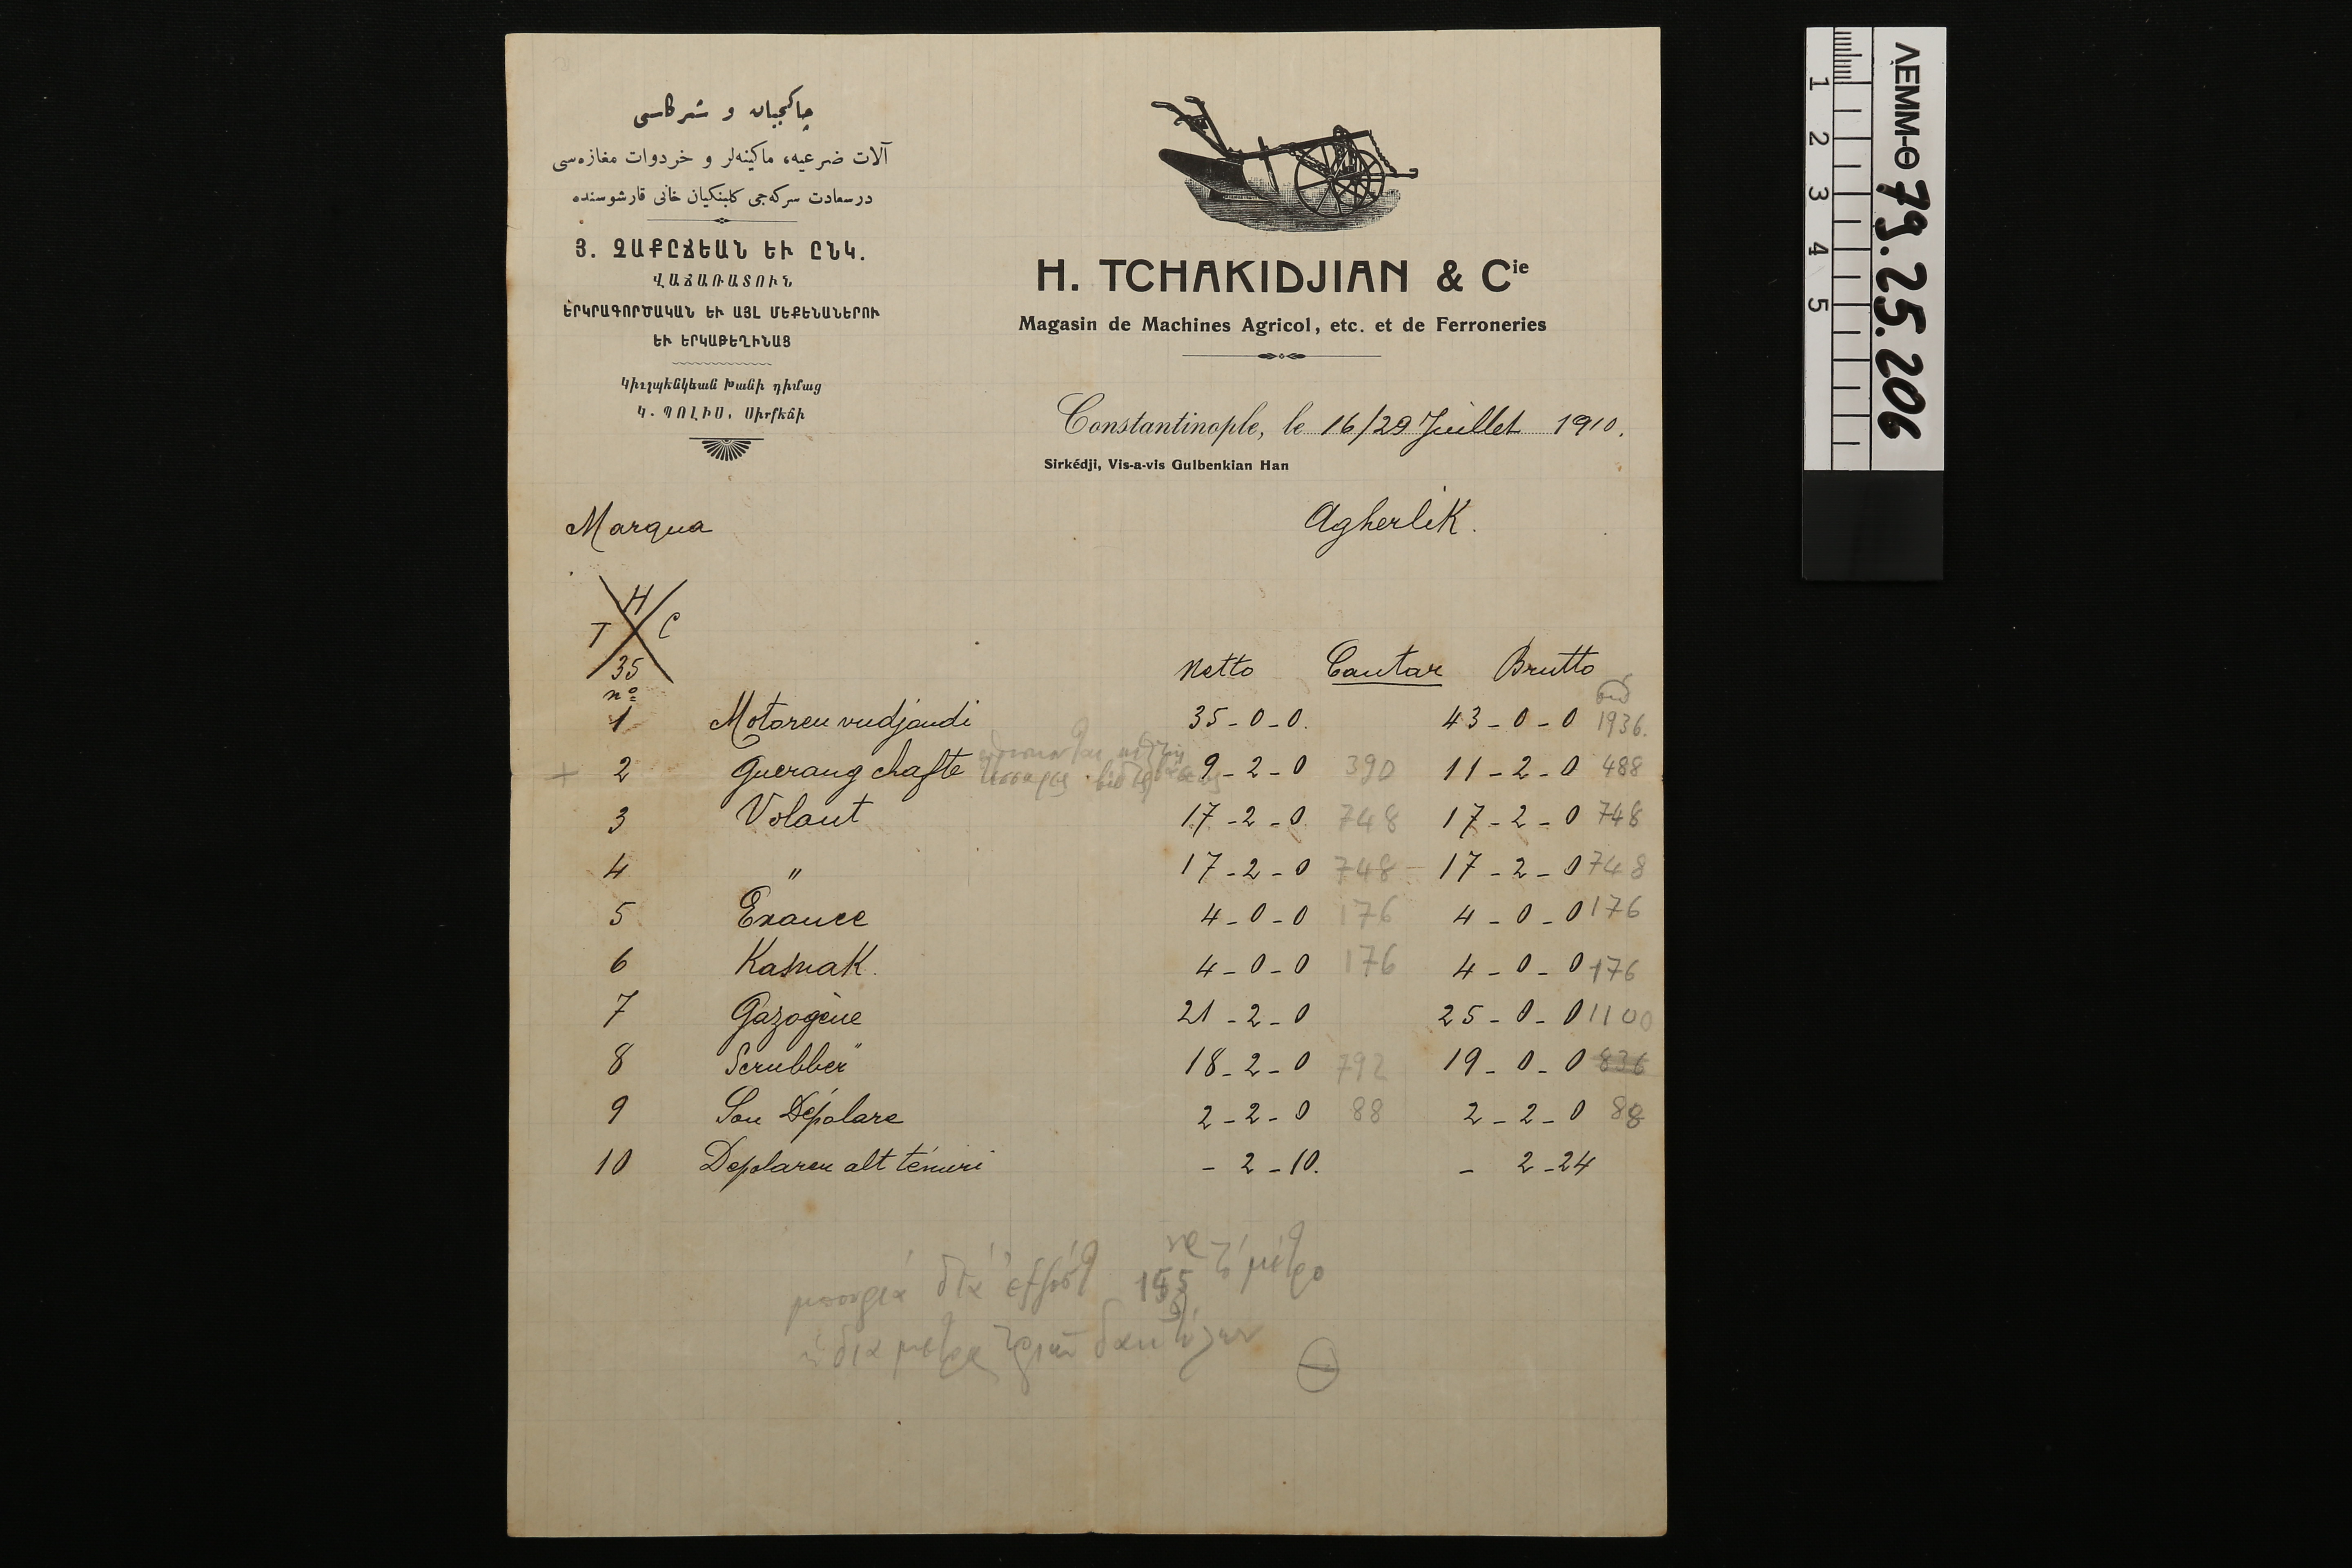 چاکجیان و شرکاسی
آلات ضرعیه، ماکینه‌لر و خردوات مغازه‌سی
درسعادت سرکه‌جی کلبنکیان خانی قارشوسنده
Յ. ՉԱՔԸՃԵԱՆ ԵՒ ԸՆԿ.
ՎԱՃԱՌԱՏՈՒՆ
ԵՐԿՐԱԳՈՐԾԱԿԱՆ ԵՒ ԱՅԼ ՄԵՔԵՆԱՆԵՐՈՒ
ԵՒ ԵՐԿԱԹԵՂԻՆԱՑ
Կիւլպէնկեան Խանի դիմաց
Կ. ՊՈԼԻՍ, Սիրքէճի
H. TCHAKIDJIAN & Cie
Magasin de Machines Agricol, etc. et de Ferroneries
Constantinople, le 16/29 Juillet 1910.
Sirkédji, Vis-a-vis Gulbenkian Han
Marqua Agherlik.
H
T C
35
netto Cantar Brutto
nº
1 Motoreu vudjoudi 35-0-0. 43-0-0 1936.
2 Guerang chafte 9-2-0 390 11-2-0 488
τέσσαρες
3 Volant 17-2-0 748 17-2-0 748
4 " 17-2-0 748 17-2-0 748
5 Exance 4-0-0 176 4-0-0 176
6 Kasnak. 4-0-0 176 4-0-0 176
7 Gazogène 21-2-0 25-0-0 1100
8 Scrubber 18-2-0 792 19-0-0 836
9 Sou Dépolare 2-2-0 88 2-2-0 88
10 Depolareu alt témuri -2-10. - 2-24
μπουριά διά 155 τό μέτρο
διαμετρ τριῶν δακτύλων
ΛΕΜΜ-Θ 79.25.206
1 2 3 4 5